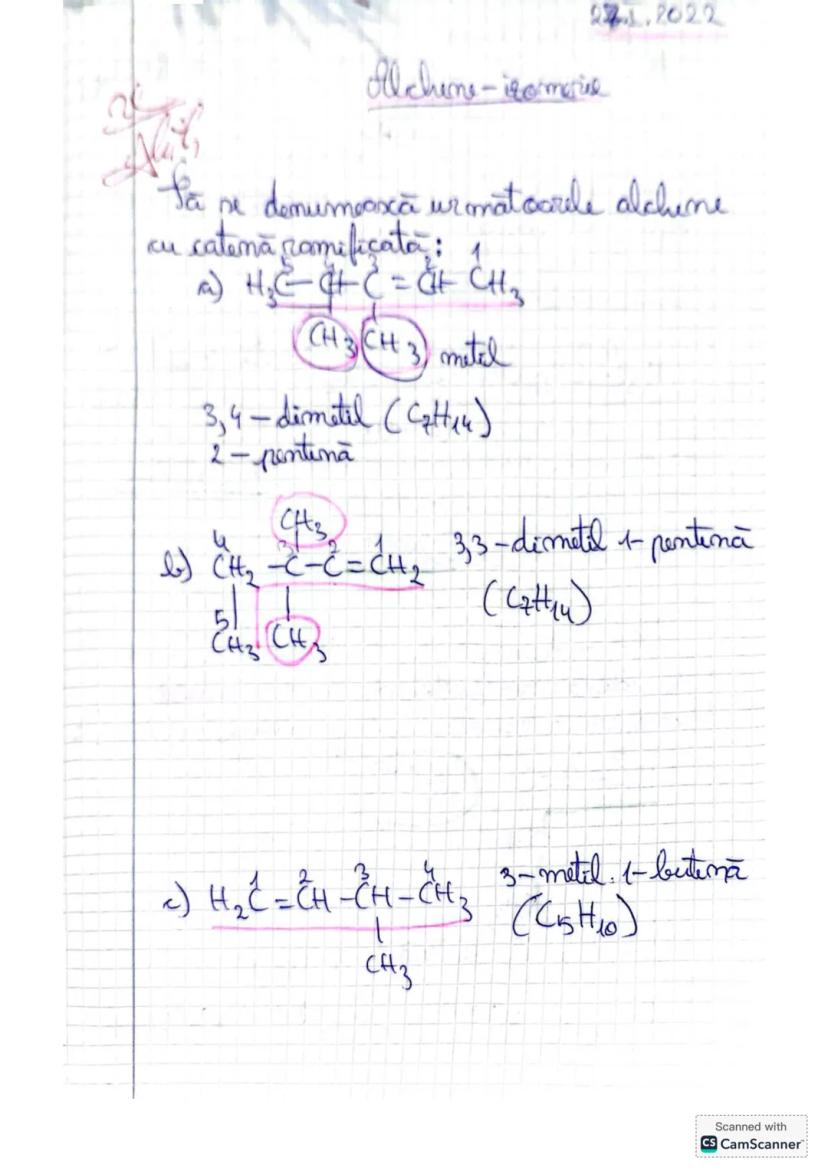 27.I.2022
Alchene-izomerie
Să se denumească următoarele alchene
cu catenă ramificată:
5 4 3 2 1
a) H₃C-CH-C=CH-CH₃
CH₃ CH₃ metil
3,4-dimetil (C₇H₁₄)
2-pentenă
CH₃
4 3 2 1
b) CH₂-C-C=CH₂ 3,3-dimetil 1-pentenă
(C₇H₁₄)
5
CH₃ CH₃
1 2 3 4
c) H₂C=CH-CH-CH₃ 3-metil 1-butenă
(C₅H₁₀)
CH₃
Scanned with
CS CamScanner